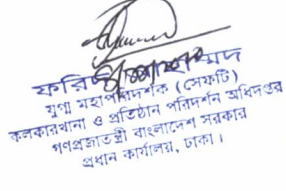 ফরিদ আহাম্মদ
যুগ্ম মহাপরিদর্শক (সেফটি)
কলকারখানা ও প্রতিষ্ঠান পরিদর্শন অধিদপ্তর
গণপ্রজাতন্ত্রী বাংলাদেশ সরকার
প্রধান কার্যালয়, ঢাকা।